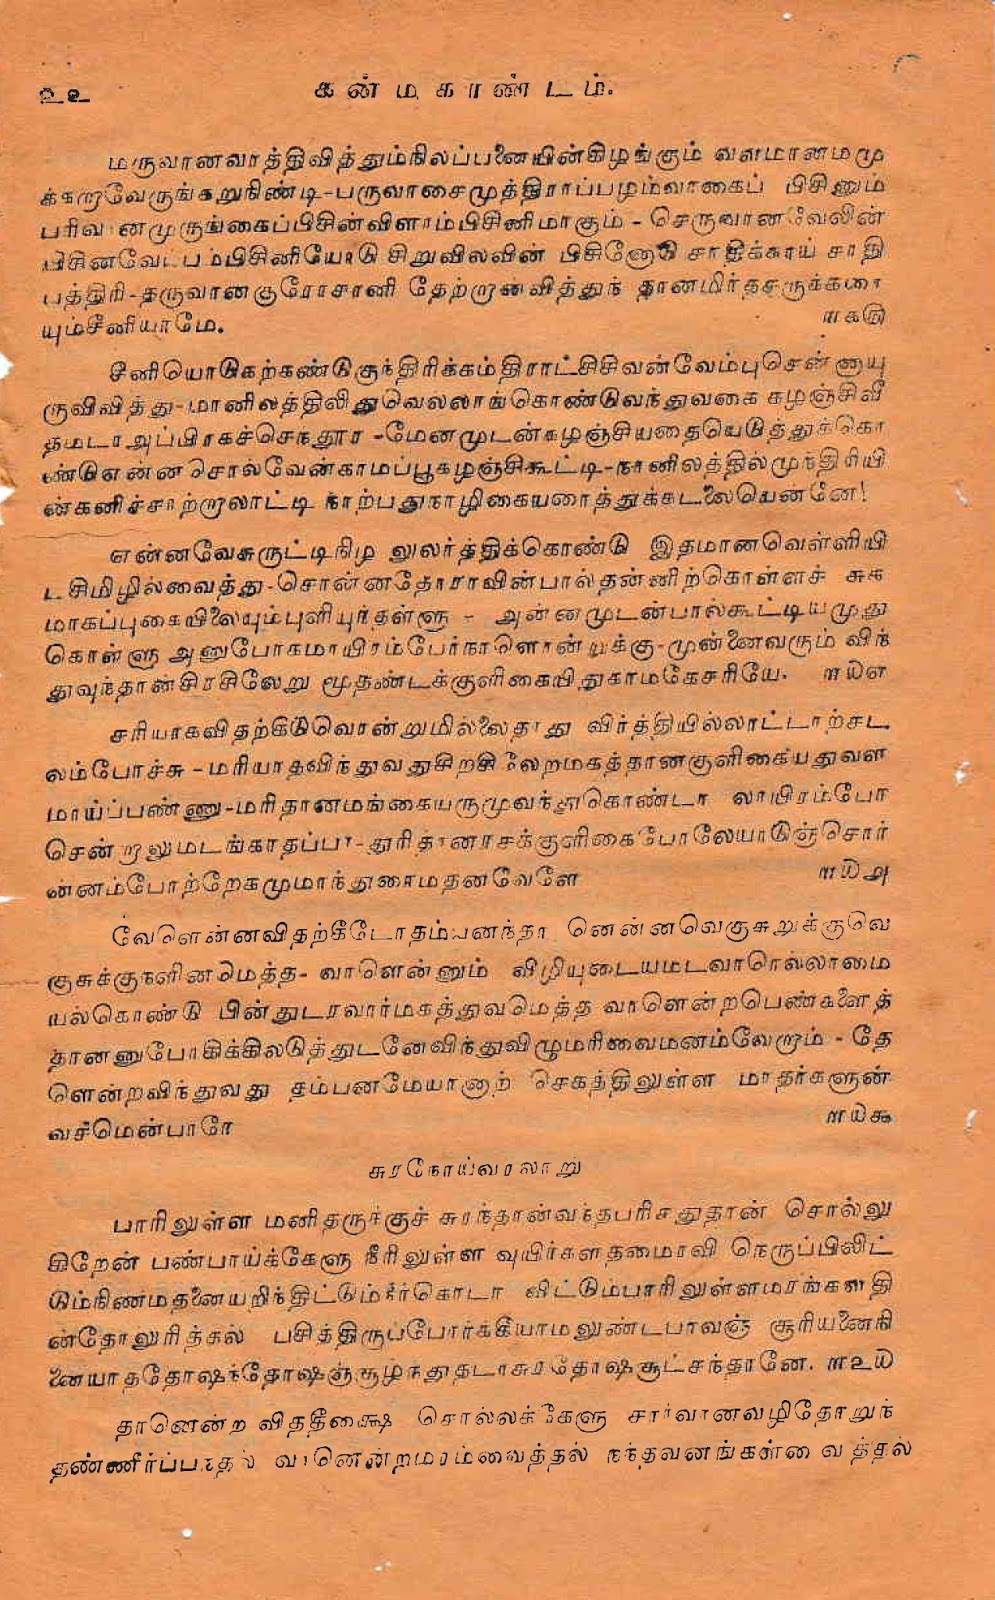 உஉ கன்மகாண்டம்.
மருவானவாத்திவித்தும்நிலப்பனையின்கிழங்கும் வளமானமமு
க்கறாவேருங்கறுகிண்டி-பருவாசைமுத்திராப்பழம்வாகைப் பிசினும்
பரிவானமுருங்கைப்பிசின்விளாம்பிசினிமாகும் - செருவானவேலின்
பிசினவேப்பம்பிசினியோடு சிறுவிலவின் பிசினோடு சாதிக்காய் சாதி
பத்திரி-தருவானகுரோசாணி தேற்றானவித்துந் தானமிர்தசருக்கரை
யும்சீனியாமே. ௱௧௫
சீனியொடுகற்கண்டுகுந்திரிக்கம்திராட்சிசிவன்வேம்புசென்னாயு
ருவிவித்து-மானிலத்திலிதுவெல்லாங்கொண்டுவந்துவகை கழஞ்சிவீ
தமடாஅப்பிரகச்செந்தூர -மேனமுடன்கழஞ்சியதையெடுத்துக்கொ
ண்டுஎன்னசொல்வேன்காமப்பூகழஞ்சிகூட்டி-நானிலத்தில்முந்திரியி
ண்கனிச்சாற்றாலாட்டி நாற்பதுநாழிகையரைத்துக்கடலையென்னே!
என்னவேசுருட்டிநிழ லுலர்த்திக்கொண்டு இதமானவெள்ளியி
டசிமிழில்வைத்து-சொன்னதோராவின்பால்தன்னிற்கொள்ளச் சுக
மாகப்புகையிலையும்புளியுந்தள்ளு - அன்னமுடன்பால்கூட்டியமுது
கொள்ளு அனுபோகமாயிரம்பேர்நாளொன்றுக்கு-முன்னைவரும் விந்
துவுந்தான்சிரசிலேறு மூதண்டக்குளிகையிதுகாமகேசரியே. ௱௰௭
சரியாகவிதற்கிடுவொன்றுமில்லைதாது விர்த்தியில்லாட்டாற்சட
லம்போச்சு - மரியாதவிந்துவதுசிறசிலேறமகத்தானகுளிகையதுவள
மாய்ப்பண்ணு-மரிதானமங்கையருமூவந்துகொண்டா லாயிரம்போ
சென்றாலுமடங்காதப்பா-துரிதானரசக்குளிகைபோலேயாடுஞ்சொர்
ன்னம்போற்றேகமுமாந்துரைமதனவேளே ௱௰௮
வேளென்னவிதற்கீடோதம்பனந்தா னென்னவெகுசுறுக்குவெ
குசுக்குநளினமெத்த- வாளென்னும் விழியுடையமடவாரெல்லாமை
யல்கொண்டு பின்துடரவார்மகத்துவமெத்த வாளென்றபெண்களைத்
தானனுபோகிக்கிலடுத்துடனேவிந்துவிழுமரிவைமனம்வேறாம் - தே
ளென்றவிந்துவது தம்பனமேயானாற் செகத்திலுள்ள மாதர்களுன்
வசமென்பாரே ௱௰௯
சுரநோய்வரலாறு
பாரிலுள்ள மனிதருக்குச் சுரந்தான்வந்தபரிசதுதான் சொல்லு
கிறேன் பண்பாய்க்கேளு நீரிலுள்ள வுயிர்களதமைராவி நெருப்பிலிட்
டும்நிணமதனையறிந்திட்டும்நீர்கொடா விட்டும்பாரிலுள்ளமரங்களதி
ன்தோலுரித்தல் பசித்திருப்போர்க்கீயாமலுண்டபாவஞ் சூரியனைநி
னையாததோஷந்தோஷஞ்சூழ்ந்துதடாசுரதோஷசூட்சந்தானே. ௱௨௰
தானென்ற விததீக்ஷை சொல்லக்கேளு சார்வானவழிதோறுந்
தண்ணீர்ப்பந்தல் வானென்றமரம்வைத்தல் நந்தவனங்கள்வைத்தல்